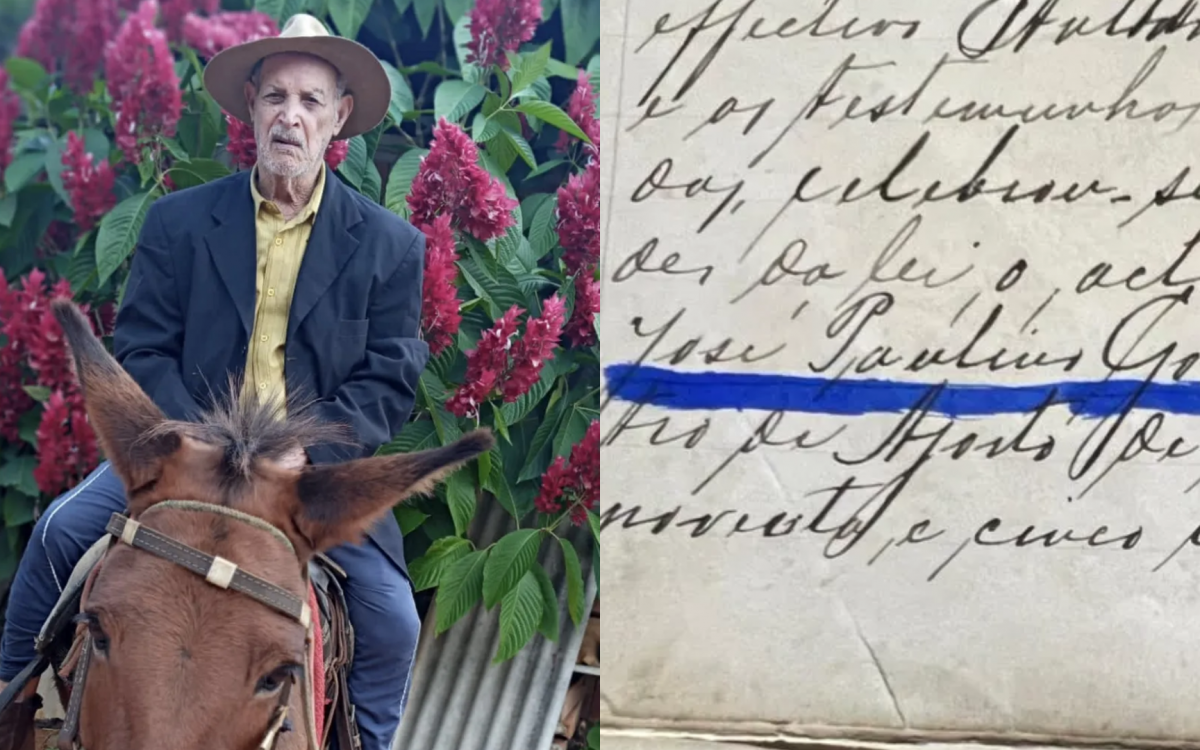 effectivo
e as testemunhas
das, celebrou-se
des da lei, o act
José Paulino Go
tro de Agosto de
noventa e cinco